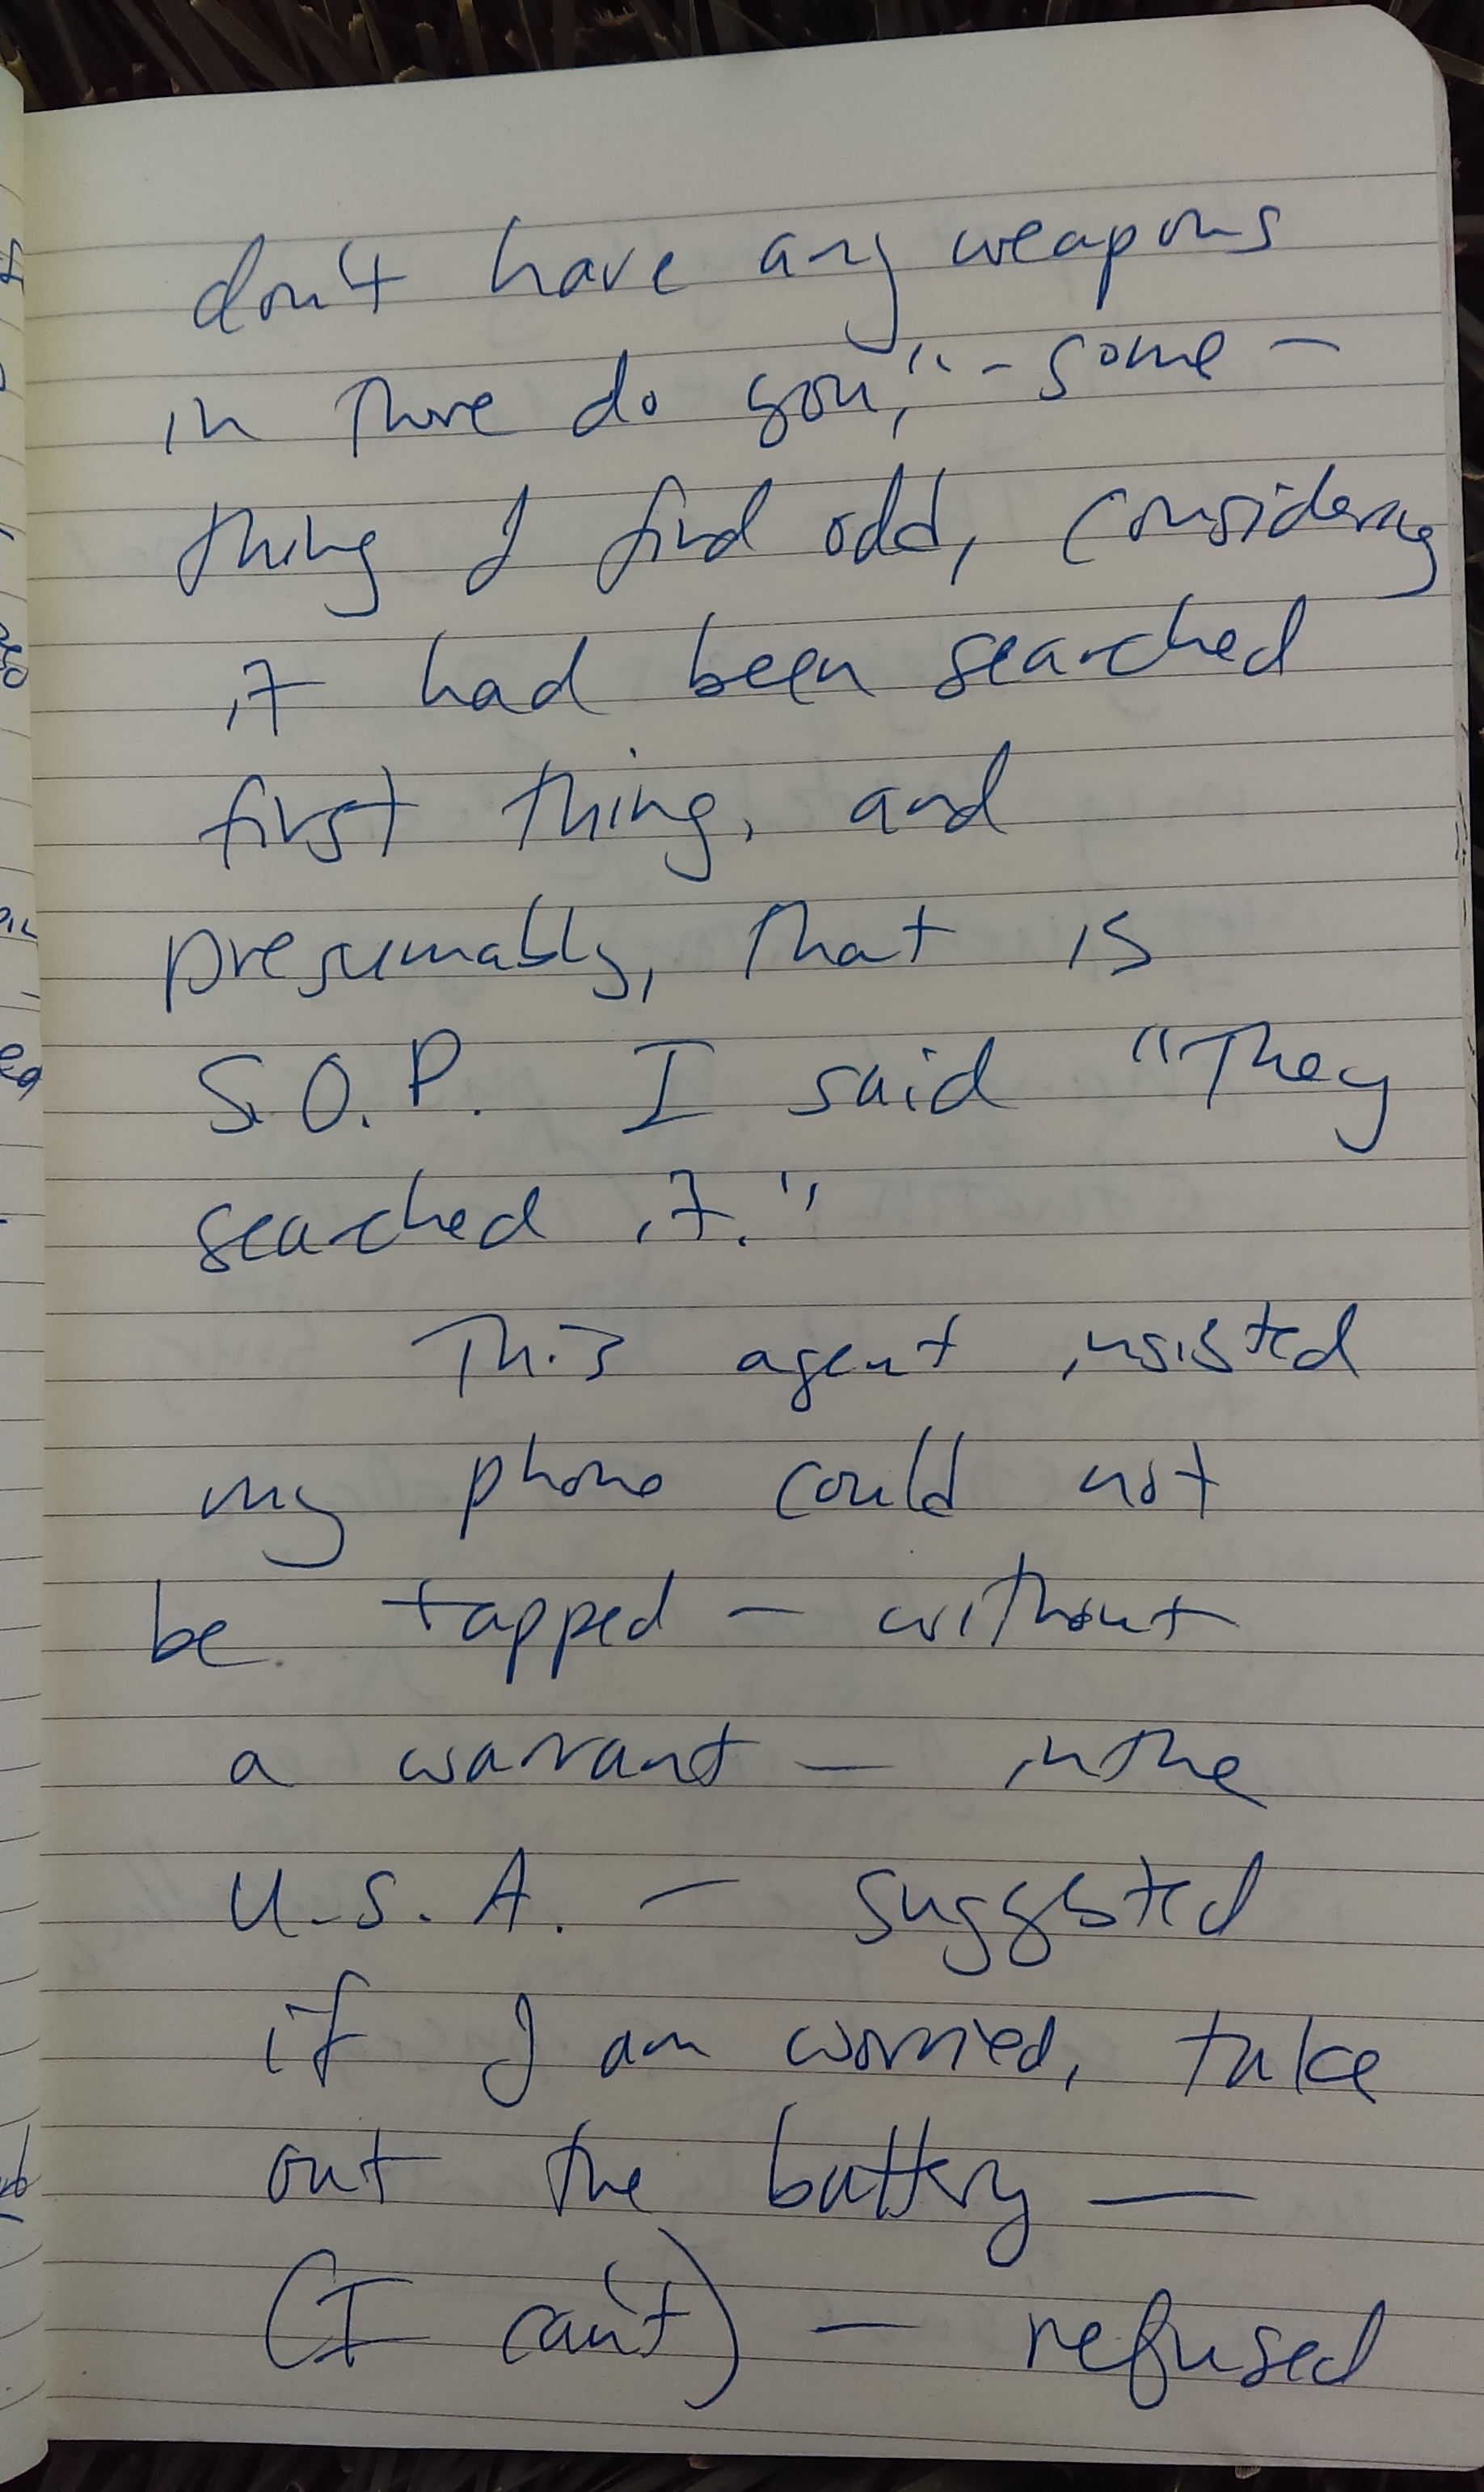 don't have any weapons
in there do you," - some -
thing I find odd, considering
it had been searched
first thing, and
presumably, that is
S.O.P. I said "They
searched it."
This agent insisted
my phone could not
be tapped — without
a warrant — in the
U.S.A. — suggested
if I am worried, take
out the battery —
(I can't) — refused